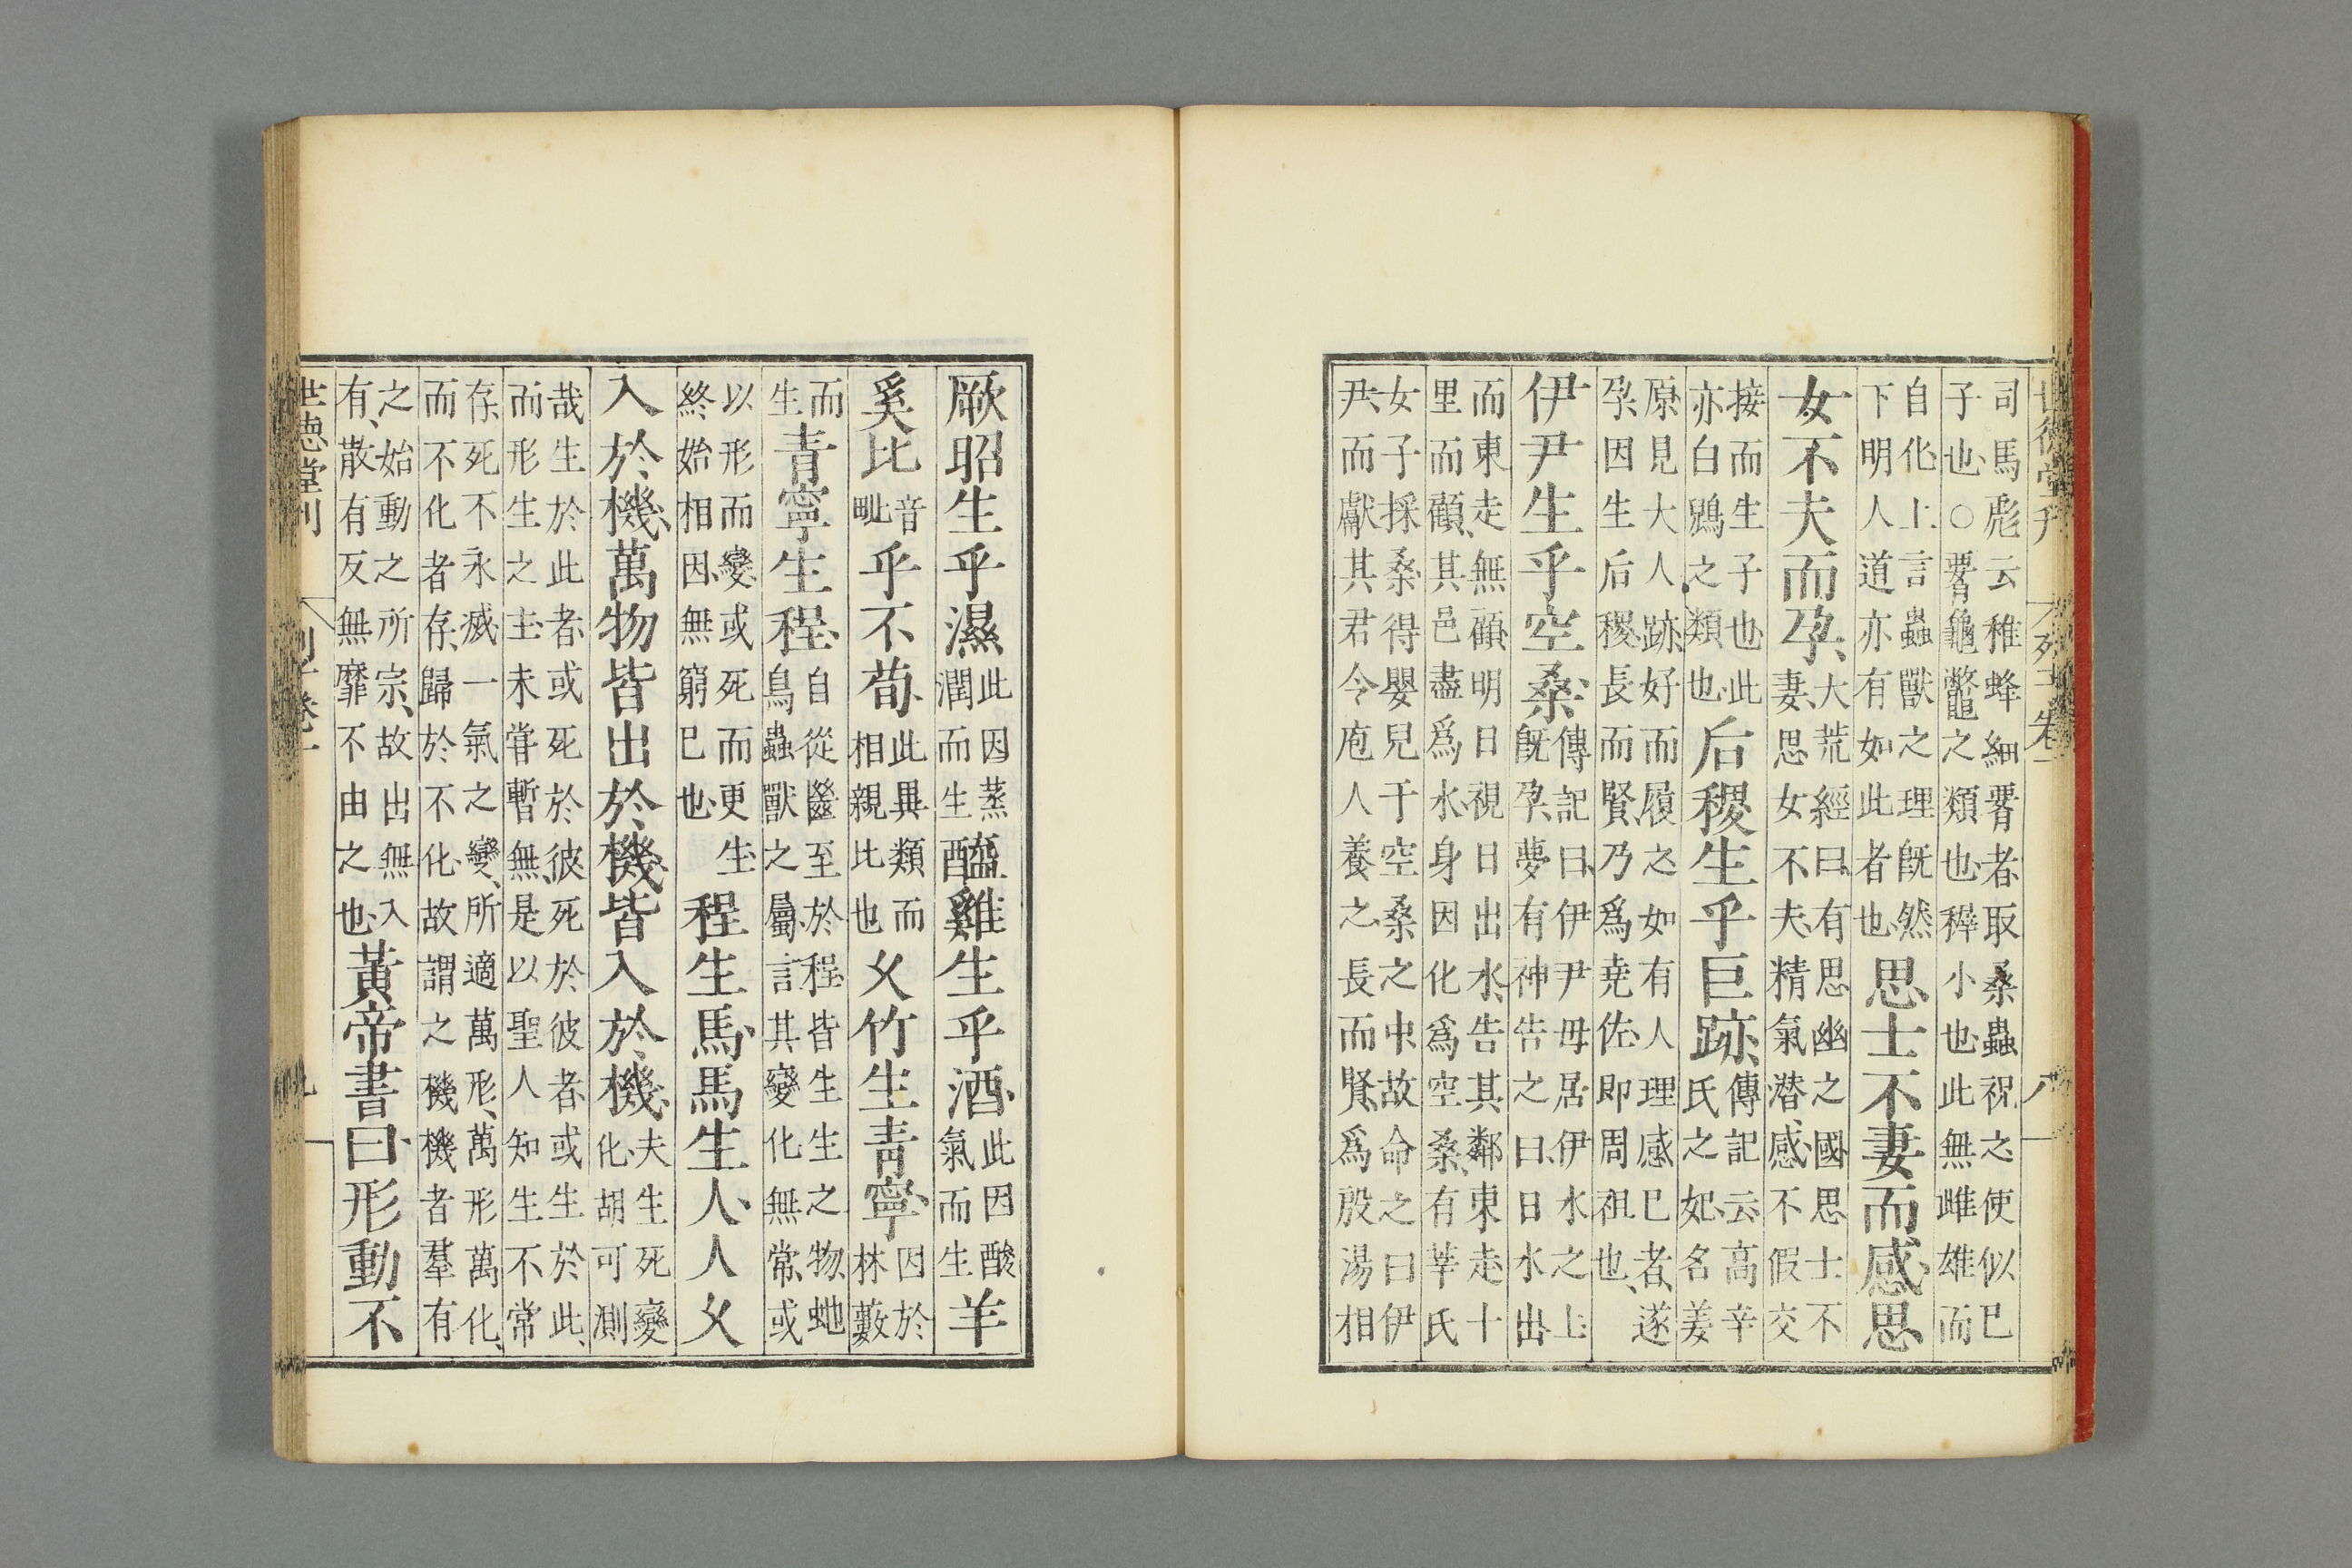 世德堂刊 列子卷一 八
司馬彪云稚蜂細𦝫者取桑蟲祝之使似巳
子也○𦝫龜鼈之類也稺小也此無雌雄而
自化上言蟲獸之理旣然
下明人道亦有如此者也思士不妻而感思
女不夫而孕大荒經曰有思幽之國思士不
妻思女不夫精氣潜感不假交
接而生子也此
亦白鶂之類也后稷生乎巨跡傳記云高辛
氏之妃名姜
原見大人跡好而履之如有人理感巳者遂
孕因生后稷長而賢乃爲堯佐即周祖也
伊尹生乎空桑傳記曰伊尹母居伊水之上
旣孕夢有神告之曰日水出
而東走無顧明日視日出水告其鄰東走十
里而顧其邑盡爲水身因化爲空桑有莘氏
女子採桑得嬰兒于空桑之中故命之曰伊
尹而獻其君令庖人養之長而賢爲殷湯相
厥昭生乎濕此因蒸
潤而生醯雞生乎酒此因酸
氣而生羊
奚比音
毗乎不荀此異類而
相親比也久竹生青寧因於
林藪
而
生青寧生程自從䘌至於程皆生生之物虵
鳥蟲獸之屬言其變化無常或
以形而變或死而更生
終始相因無窮巳也程生馬馬生人人久
入於機萬物皆出於機皆入於機夫生死變
化胡可測
哉生於此者或死於彼死於彼者或生於此
而形生之主未甞暫無是以聖人知生不常
存死不永滅一氣之變所適萬形萬形萬化
而不化者存歸於不化故謂之機機者羣有
之始動之所宗故出無入
有散有反無靡不由之也黃帝書曰形動不
世德堂刊 列子卷一 九